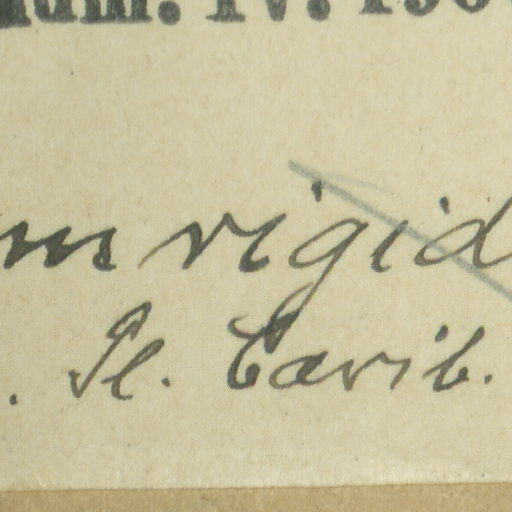 um. IV. 190
m rigid
. Pl. Carib.